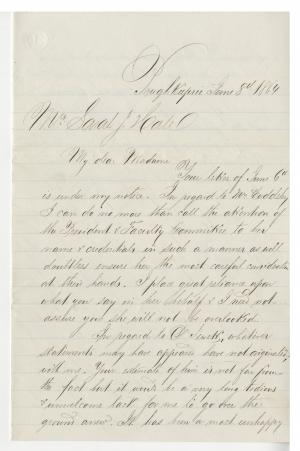 Poughkeepsie June 8th 1864
Mrs Sarah J Hale
My dear Madame
Your letter of June 6th
is under my notice. In regard to Mrs
I can do no more than call the attention of
the President & Faculty Committee to her
name & credentials in such a manner as will
doubtless ensure her the most careful consideration
at their hands. I place great reliance upon
what you say in her behalf & I need not
assure you she will not be overlooked.
In regard to whatever
statements may have appeared have not originated
with me. Your estimate of him is not far from
the fact but it would be a very long tedious
& unwelcome task for me to go over the
ground anew. It has been a most unhappy